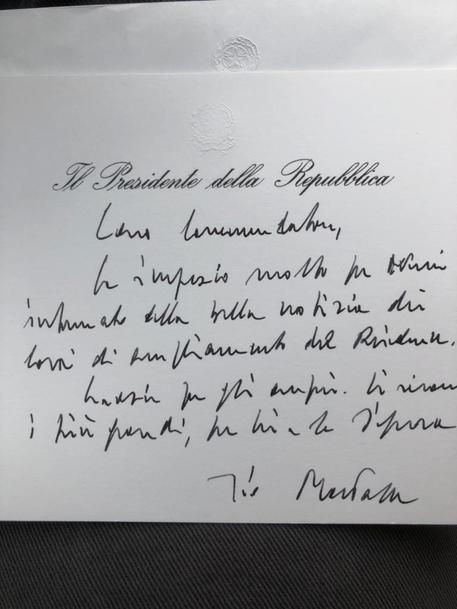 Il Presidente della Repubblica
Caro Commendatore,
La ringrazio molto per avermi
informato della bella notizia dei
lavori di ampliamento del
Grazie per gli auguri.
i più grandi, per Lei e la Signora
Suo Mattarella